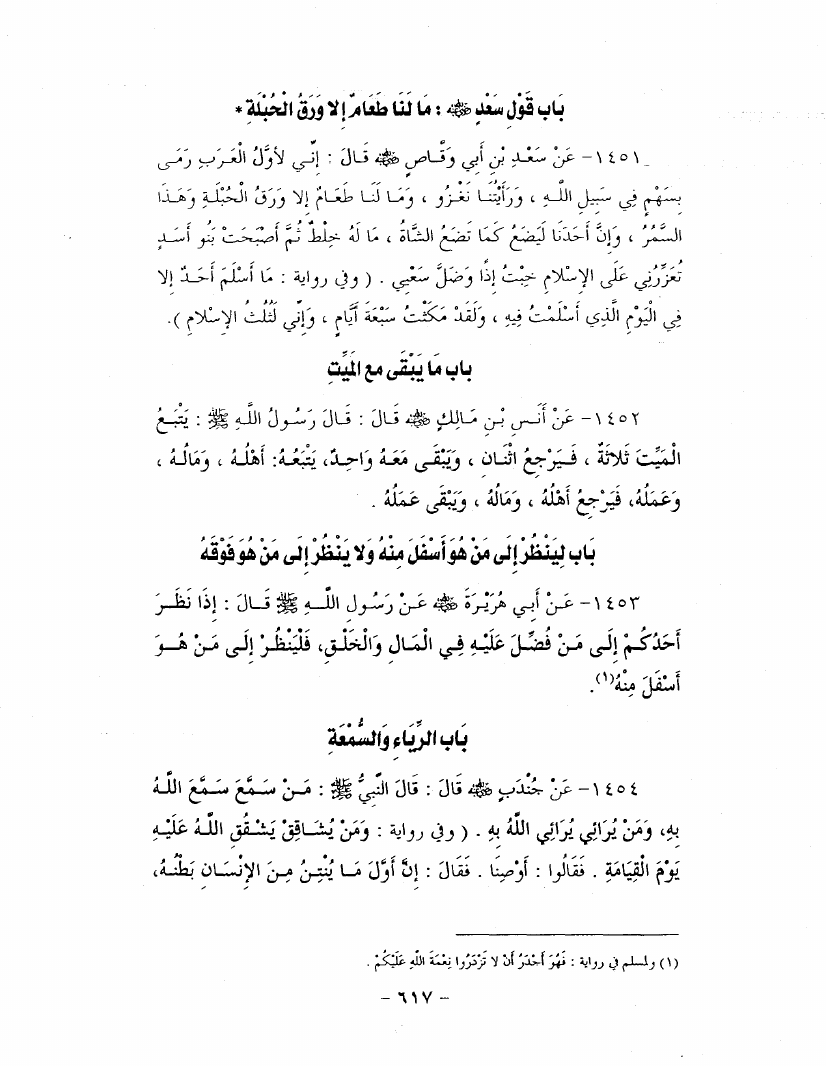 بَاب قَوْلِ سَعْدٍ ﷺ : مَا لَنَا طَعَامٌ إِلا وَرَقُ الْحُبْلَةِ *
١٤٥١- عَنْ سَعْدِ بْنِ أَبِي وَقَّاصٍ ﷺ قَالَ : إِنِّي لأَوَّلُ الْعَرَبِ رَمَى
بِسَهْمٍ فِي سَبِيلِ اللَّهِ ، وَرَأَيْتُنَا نَغْزُو ، وَمَا لَنَا طَعَامٌ إِلا وَرَقُ الْحُبْلَةِ وَهَذَا
السَّمُرُ ، وَإِنَّ أَحَدَنَا لَيَضَعُ كَمَا تَضَعُ الشَّاةُ ، مَا لَهُ خِلْطٌ ثُمَّ أَصْبَحَتْ بَنُو أَسَدٍ
تُعَزِّرُنِي عَلَى الإِسْلامِ خِبْتُ إِذًا وَضَلَّ سَعْيِي . ( وفي رواية : مَا أَسْلَمَ أَحَدٌ إِلا
فِي الْيَوْمِ الَّذِي أَسْلَمْتُ فِيهِ ، وَلَقَدْ مَكَثْتُ سَبْعَةَ أَيَّامٍ ، وَإِنِّي لَثُلُثُ الإِسْلامِ ).
بَاب مَا يَبْقَى مع الْمَيِّتِ
١٤٥٢- عَنْ أَنَسِ بْنِ مَالِكٍ ﷺ قَالَ : قَالَ رَسُولُ اللَّهِ ﷺ : يَتْبَعُ
الْمَيِّتَ ثَلاثَةٌ ، فَيَرْجِعُ اثْنَانِ ، وَيَبْقَى مَعَهُ وَاحِدٌ، يَتْبَعُهُ: أَهْلُهُ ، وَمَالُهُ ،
وَعَمَلُهُ، فَيَرْجِعُ أَهْلُهُ ، وَمَالُهُ ، وَيَبْقَى عَمَلُهُ .
بَاب لِيَنْظُرْ إِلَى مَنْ هُوَ أَسْفَلَ مِنْهُ وَلا يَنْظُرْ إِلَى مَنْ هُوَ فَوْقَهُ
١٤٥٣- عَنْ أَبِي هُرَيْرَةَ ﷺ عَنْ رَسُولِ اللَّهِ ﷺ قَالَ : إِذَا نَظَرَ
أَحَدُكُمْ إِلَى مَنْ فُضِّلَ عَلَيْهِ فِي الْمَالِ وَالْخَلْقِ، فَلْيَنْظُرْ إِلَى مَنْ هُوَ
أَسْفَلَ مِنْهُ(١).
بَاب الرِّيَاءِ وَالسُّمْعَةِ
١٤٥٤- عَنْ جُنْدَبٍ ﷺ قَالَ : قَالَ النَّبِيُّ ﷺ : مَنْ سَمَّعَ سَمَّعَ اللَّهُ
بِهِ، وَمَنْ يُرَائِي يُرَائِي اللَّهُ بِهِ . ( وفي رواية : وَمَنْ يُشَاقِقْ يَشْقُقِ اللَّهُ عَلَيْهِ
يَوْمَ الْقِيَامَةِ . فَقَالُوا : أَوْصِنَا . فَقَالَ : إِنَّ أَوَّلَ مَا يُنْتِنُ مِنَ الإِنْسَانِ بَطْنُهُ،
(١) ولمسلم في رواية : فَهُوَ أَجْدَرُ أَنْ لا تَزْدَرُوا نِعْمَةَ اللَّهِ عَلَيْكُمْ .
– ٦١٧ –